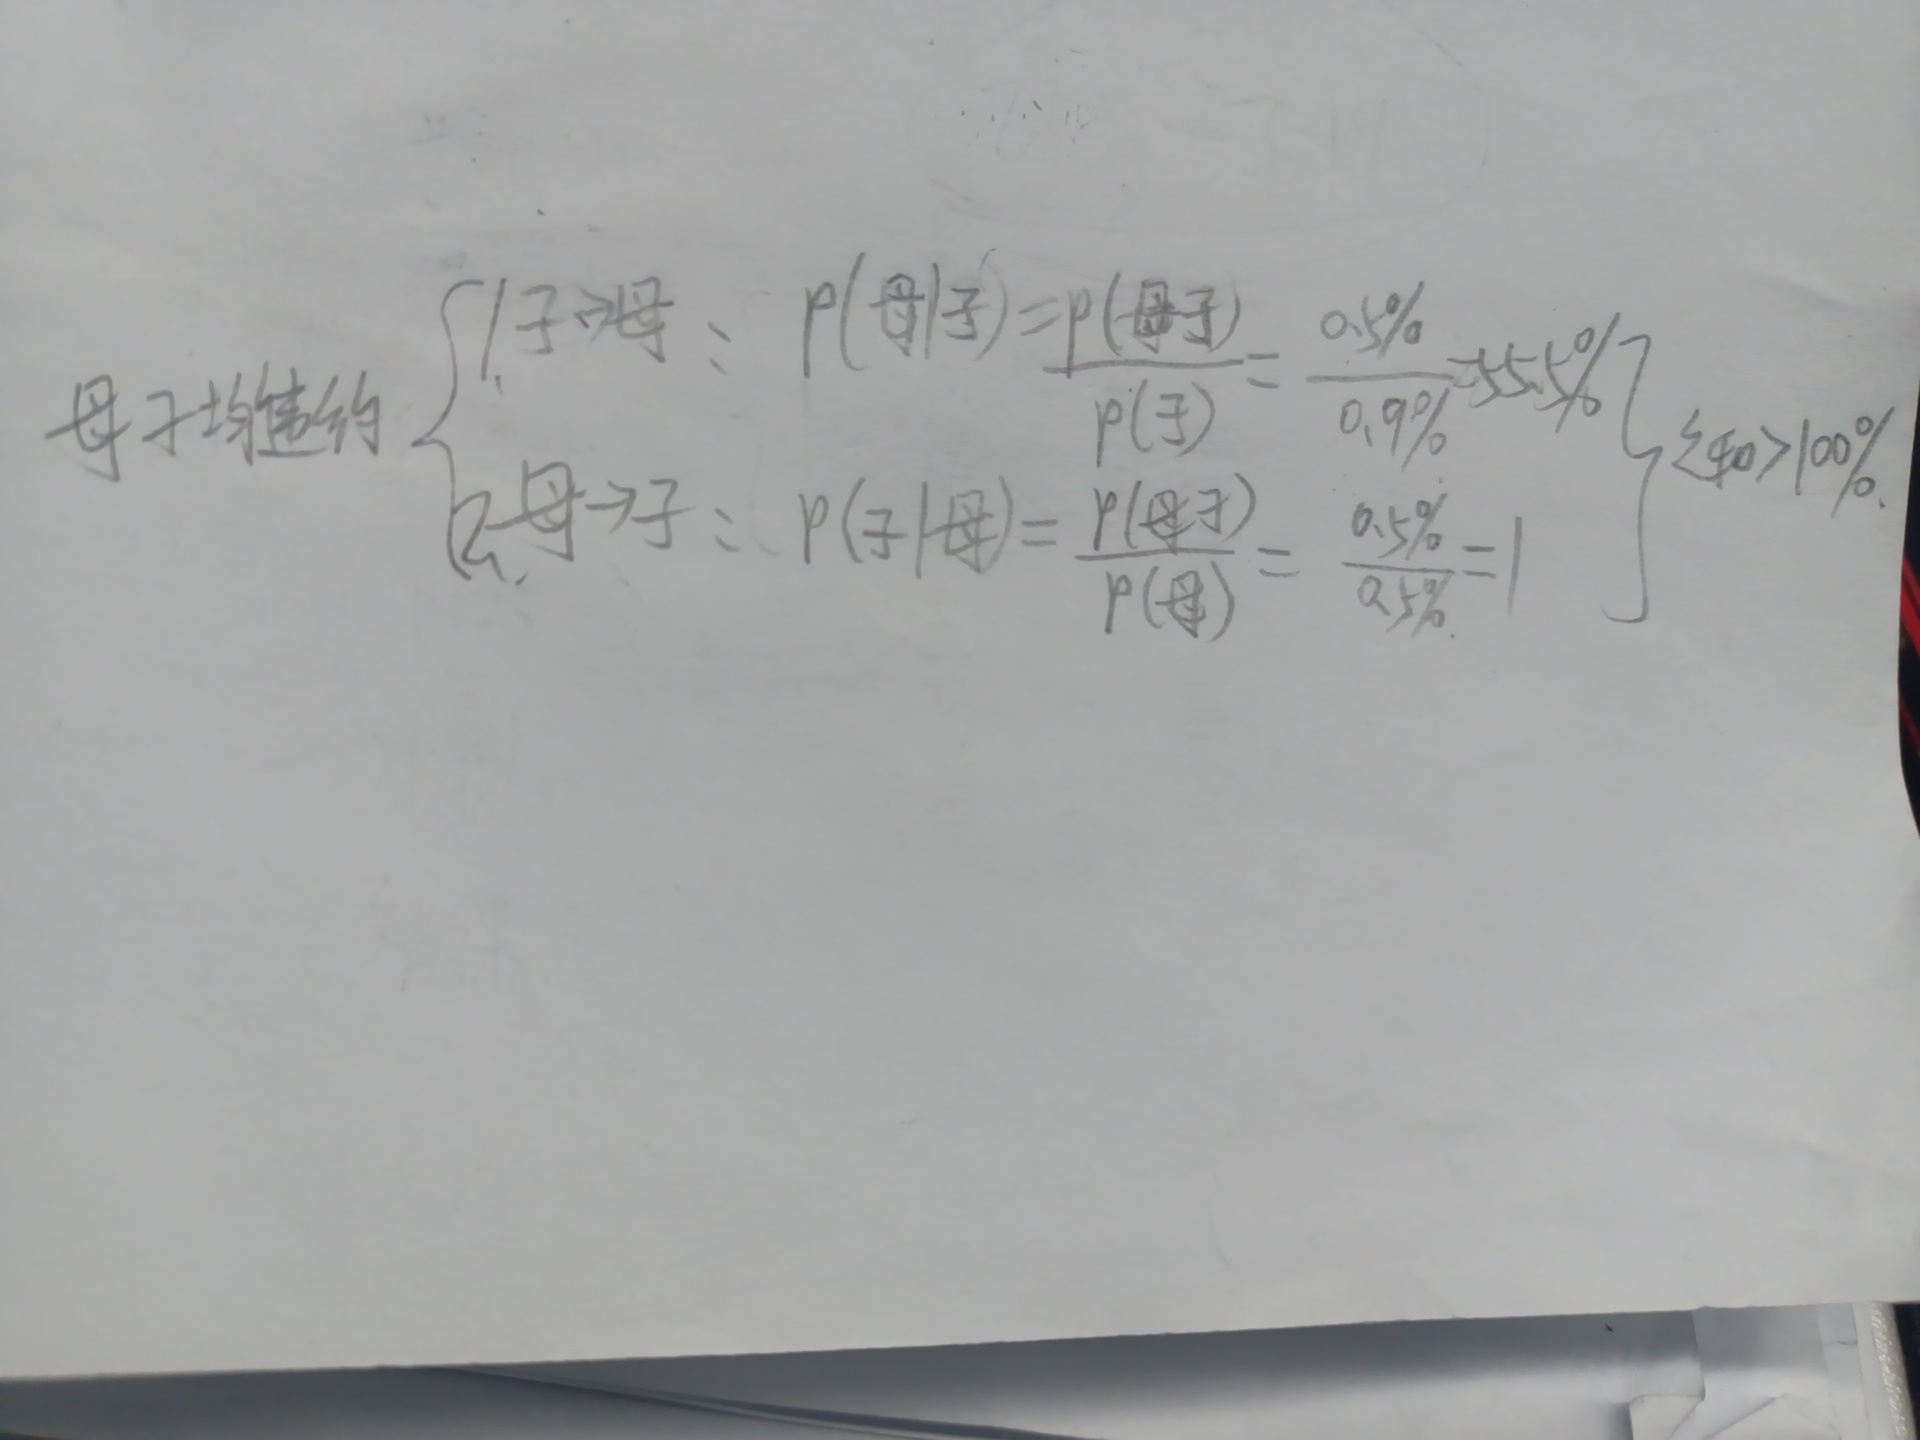 母子均违约
1. 子→母: P(母|子)=P(母子)/P(子)=0.5%/0.9%=55.5%
2. 母→子: P(子|母)=P(母子)/P(母)=0.5%/0.5%=1
Σ和>100%.